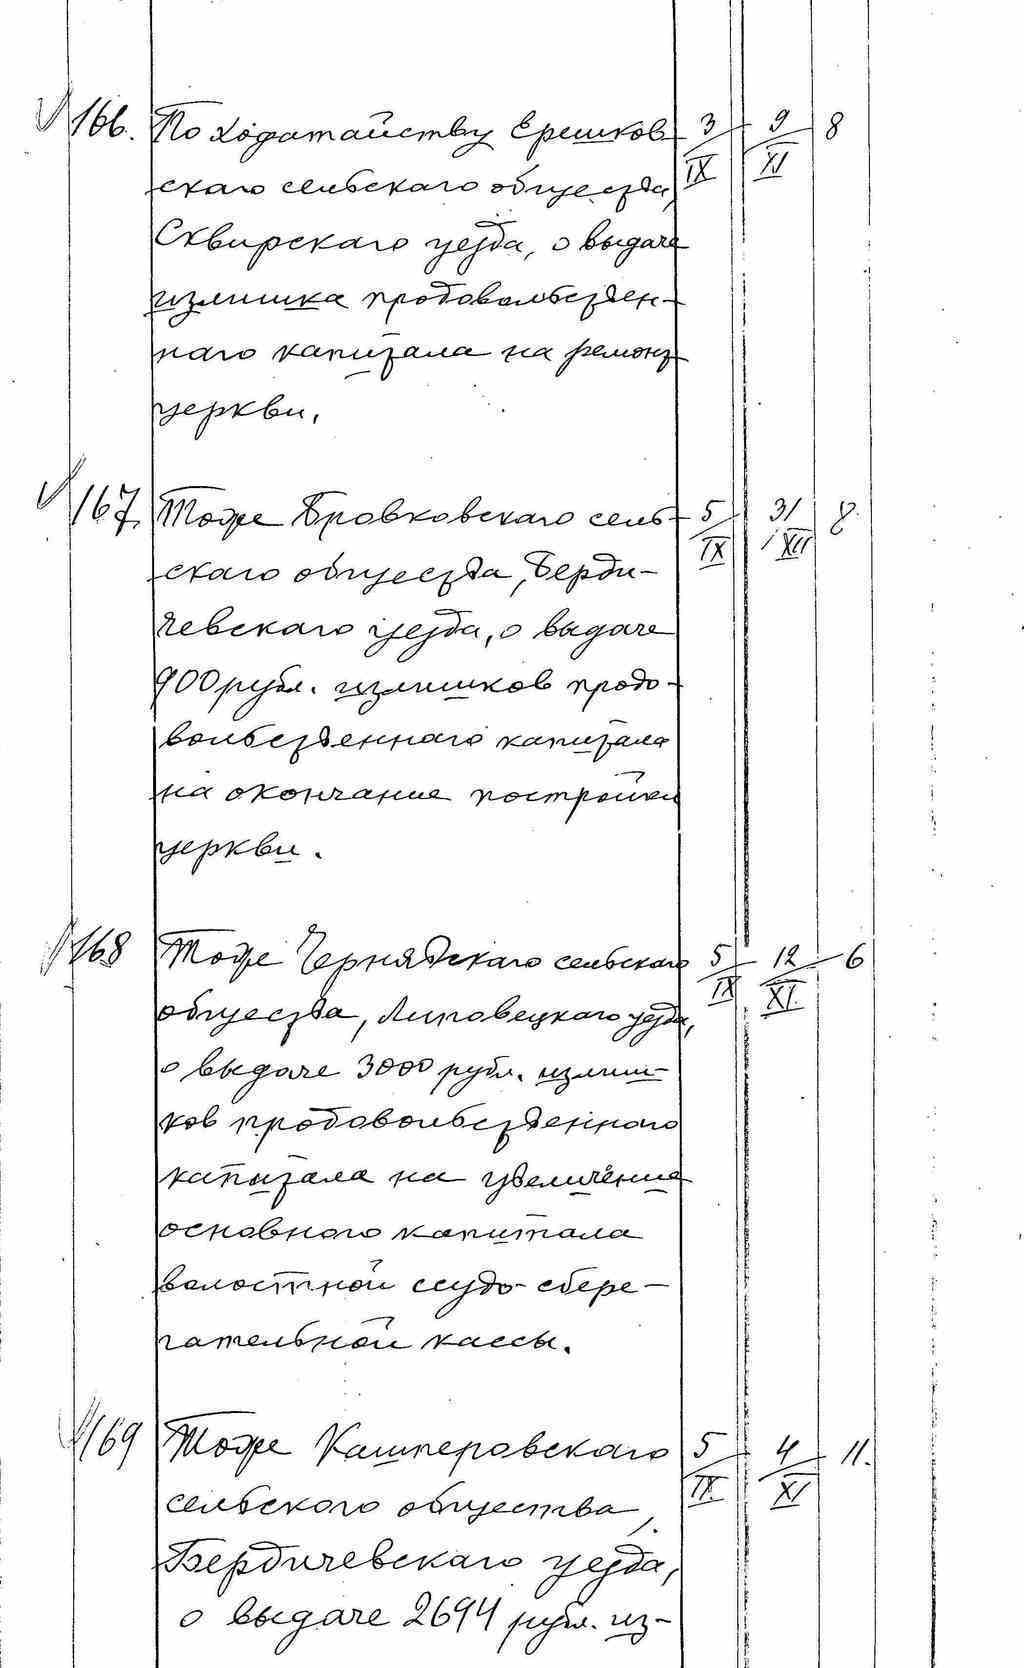 166. По ходатайству Ерешков- 3/IX 9/XI 8
скаго сельскаго общества,
Сквирскаго уезда, о выдаче
излишка продовольствен-
наго капитала на ремонт
церкви.
167. Тоже Бровковскаго сель- 5/IX 31/XII 8
скаго общества, Берди-
чевскаго уезда, о выдаче
900 рубл. излишков продо-
вольственнаго капитала
на окончание постройки
церкви.
168 Тоже Чернявскаго сельскаго 5/IX 12/XI 6
общества, Липовецкаго уезда,
о выдаче 3000 рубл. излиш-
ков продовольственнаго
капитала на увеличение
основного капитала
волостной ссудо-сбере-
гательной кассы.
169 Тоже Кашперовскаго 5/IX 4/XI 11.
сельского общества,
Бердичевскаго уезда,
о выдаче 2694 рубл. из-